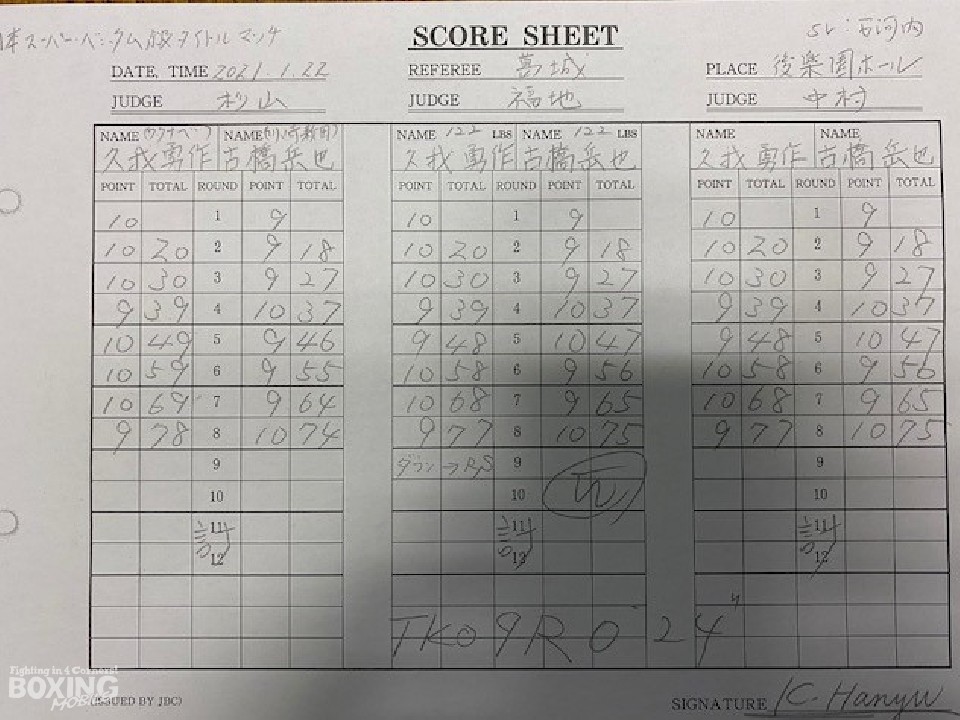 日本スーパー・バンタム級タイトルマッチ
SCORE SHEET
DATE, TIME 2021.1.22 REFEREE 葛城 PLACE 後楽園ホール
JUDGE 杉山 JUDGE 福地 JUDGE 中村
NAME NAME NAME 122 LBS NAME 122 LBS NAME NAME
久我勇作 古橋岳也 久我勇作 古橋岳也 久我勇作 古橋岳也
POINT TOTAL ROUND POINT TOTAL POINT TOTAL ROUND POINT TOTAL POINT TOTAL ROUND POINT TOTAL
10 1 9 10 1 9 10 1 9
10 20 2 9 18 10 20 2 9 18 10 20 2 9 18
10 30 3 9 27 10 30 3 9 27 10 30 3 9 27
9 39 4 10 37 9 39 4 10 37 9 39 4 10 37
10 49 5 9 46 9 48 5 10 47 9 48 5 10 47
10 59 6 9 55 10 58 6 9 56 10 58 6 9 56
10 69 7 9 64 10 68 7 9 65 10 68 7 9 65
9 78 8 10 74 9 77 8 10 75 9 77 8 10 75
9 ダウン→RS 9 9
10 10 10
11 11 11
12 12 12
TKO 9R 0'24"
Fighting in 4 Corners!
BOXING
MOBILE
(ISSUED BY JBC)
SIGNATURE K. Hanyu